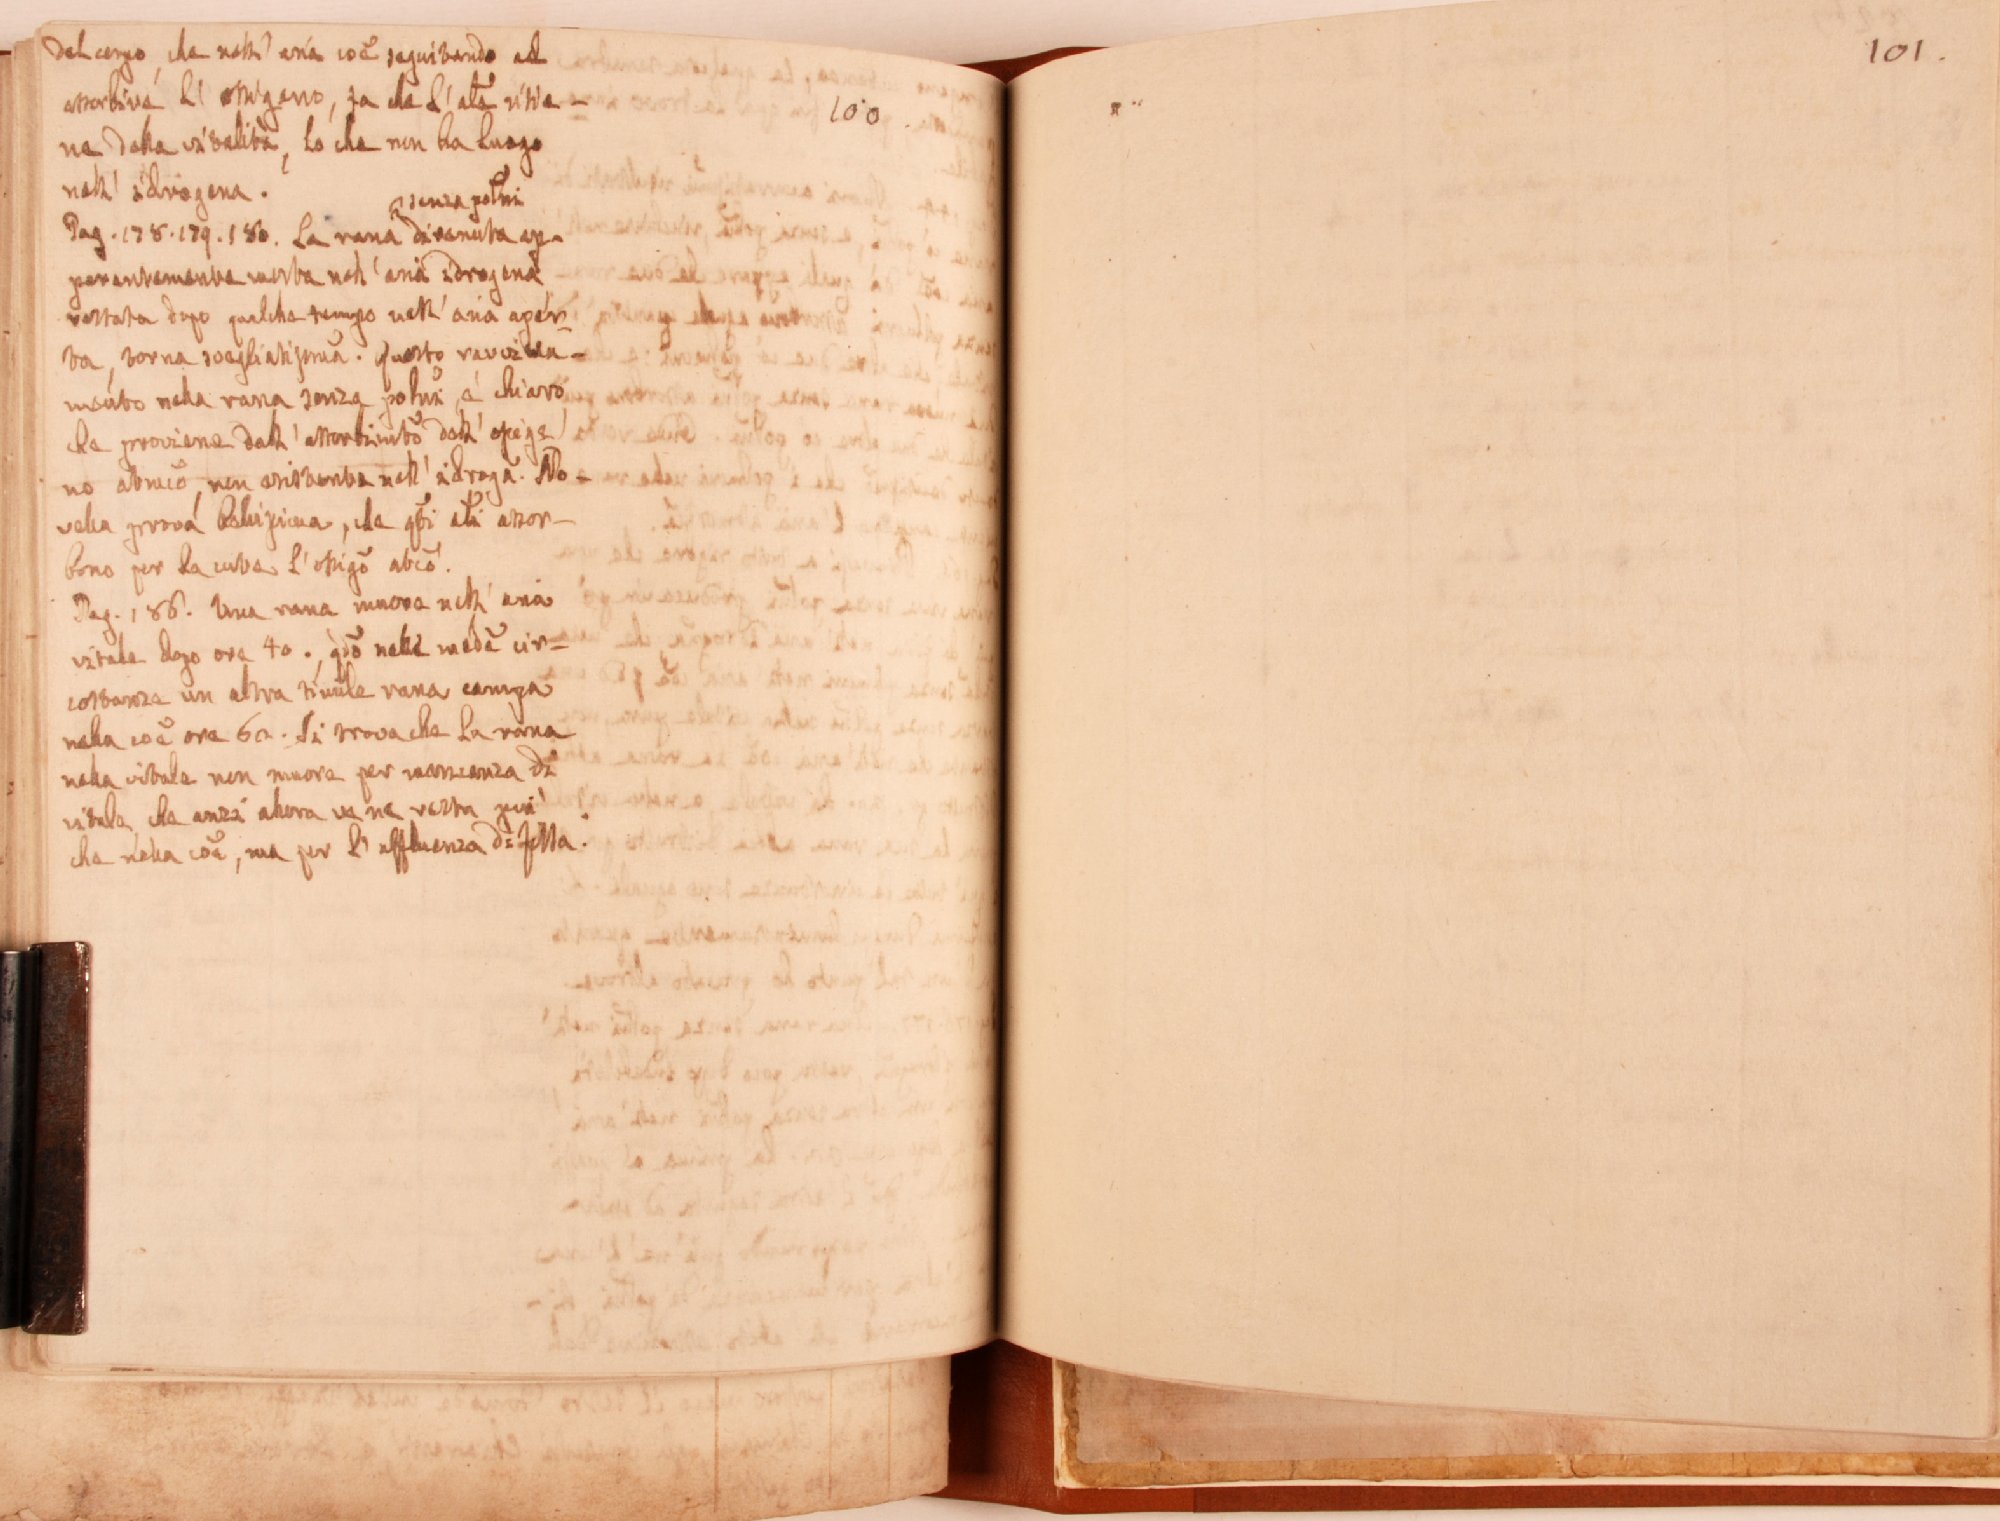 del corpo, che nell' aria coē seguitando ad
assorbire l' ossigeno, fa che l' alē ritie-
ne della vitalità, lo che non ha luogo
nell' idrogena.
senza polm̄i
Pag. 178. 179. 180. La rana divenuta ap-
parentemente morta nell' aria idrogena
restata dopo qualche tempo nell' aria aper-
ta, torna svegliatissimā. Questo ravviva-
mento nella rana senza polm̄i è chiaro
che proviene dall' assorbimtō dell' ossige-
no atmicō, non esistente nell' idrogā. No-
vella prova bellissima, che qsti ali assor-
bono per la cute l' ossigō atcō.
Pag. 186. Una rana muore nell' aria
vitale dopo ore 40., qdō nelle medē cir-
costanze un altra simile rana campa
nella coē ore 60. Si trova che la rana
nella vitale non muore per mancanza di
vitale, che anzi allora ve ne resta più
che nella coē, ma per l' affluenza di
100.
101.